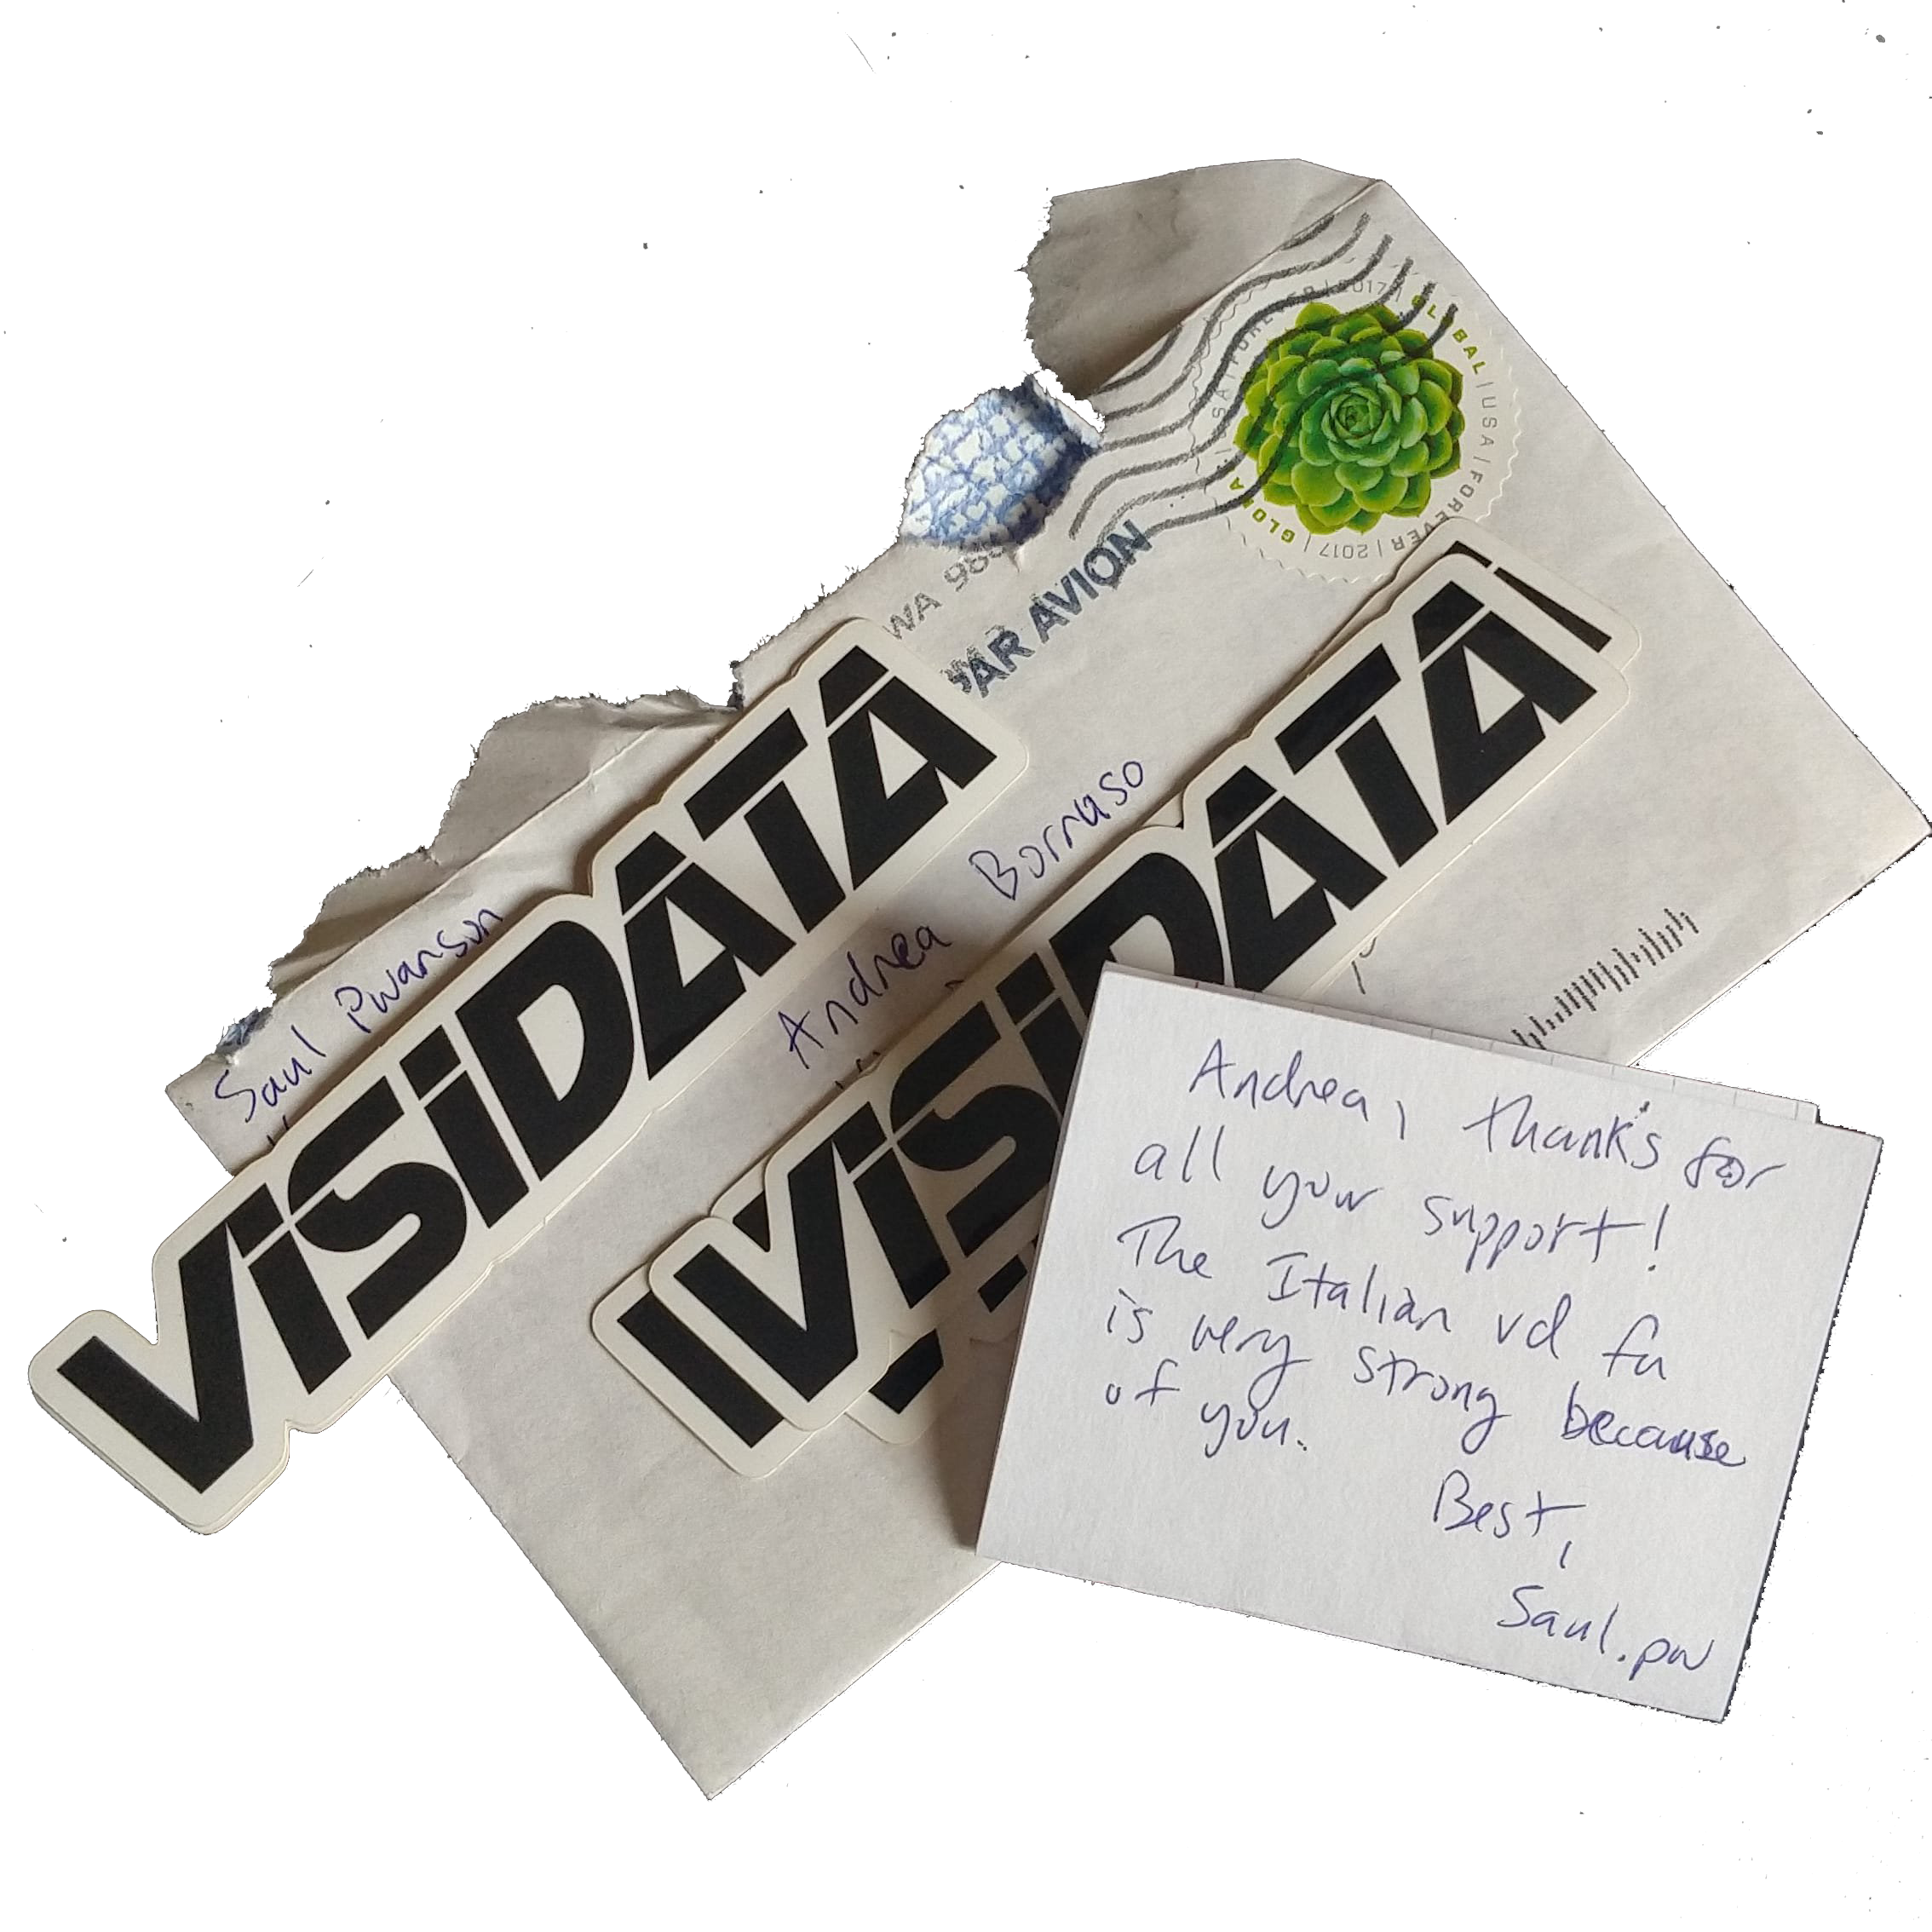 GLOBAL | USA | FOREVER | 2017 | GLOBAL | USA | FOREVER | 2017 |
WA 98
PAR AVION
Saul Pwanson
Andrea Borruso
VISIDATA
VISIDATA
Andrea, thanks for
all your support!
The Italian vd fu
is very strong because
of you.
Best,
Saul.pw